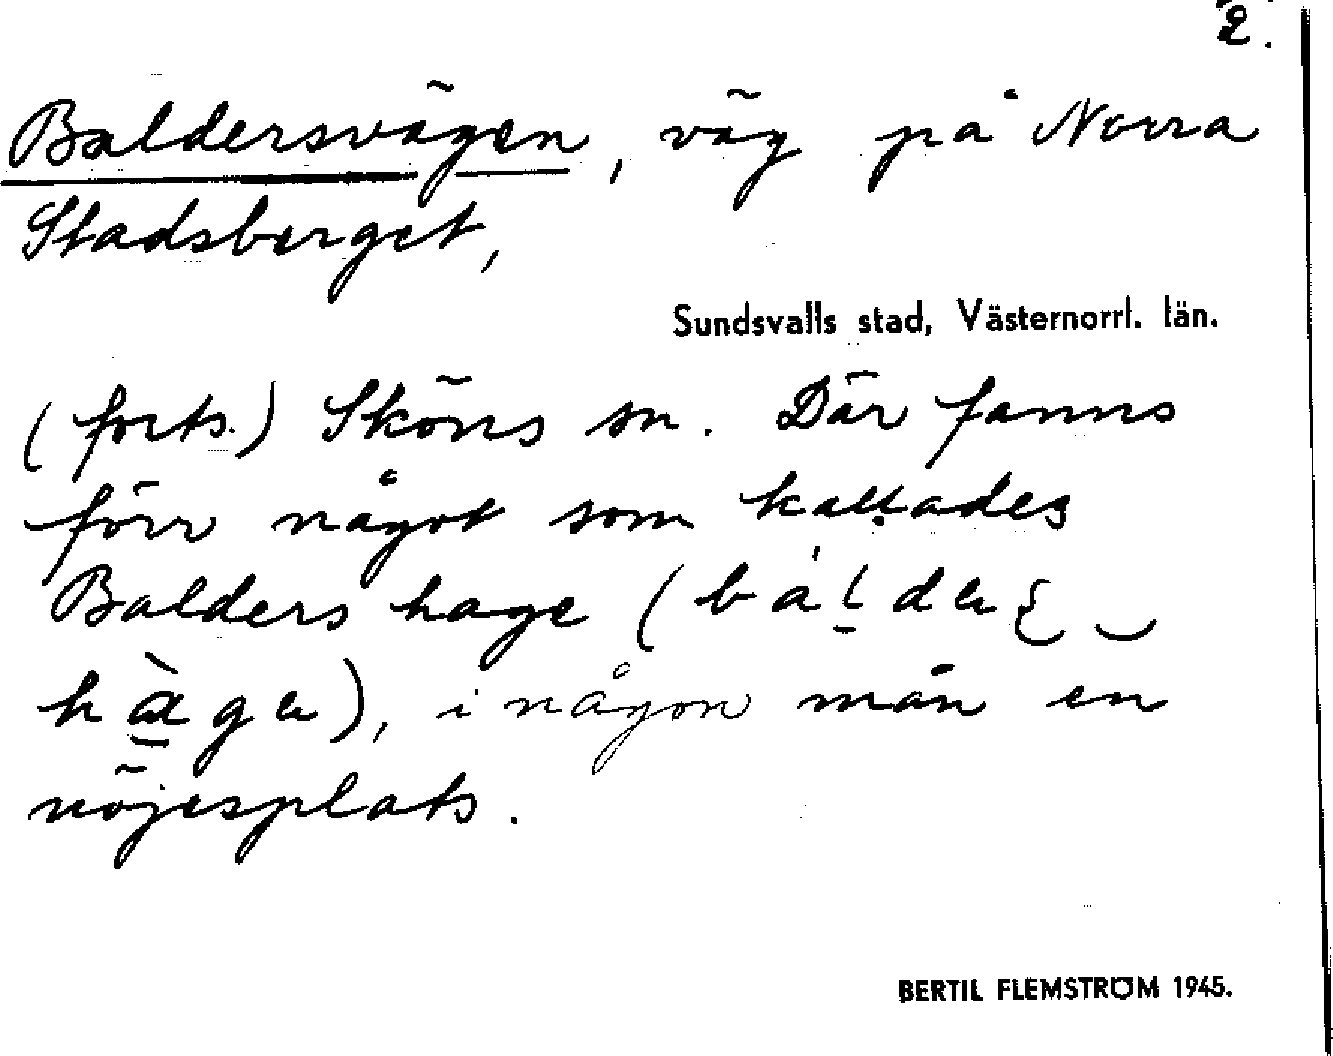 2.
Baldersvägen, väg på Norra
Stadsberget,
Sundsvalls stad, Västernorrl. län.
(forts.) Sköns sn. Där fanns
förr något som kallades
Balders hage (
), i någon mån en
nöjesplats.
BERTIL FLEMSTRÖM 1945.